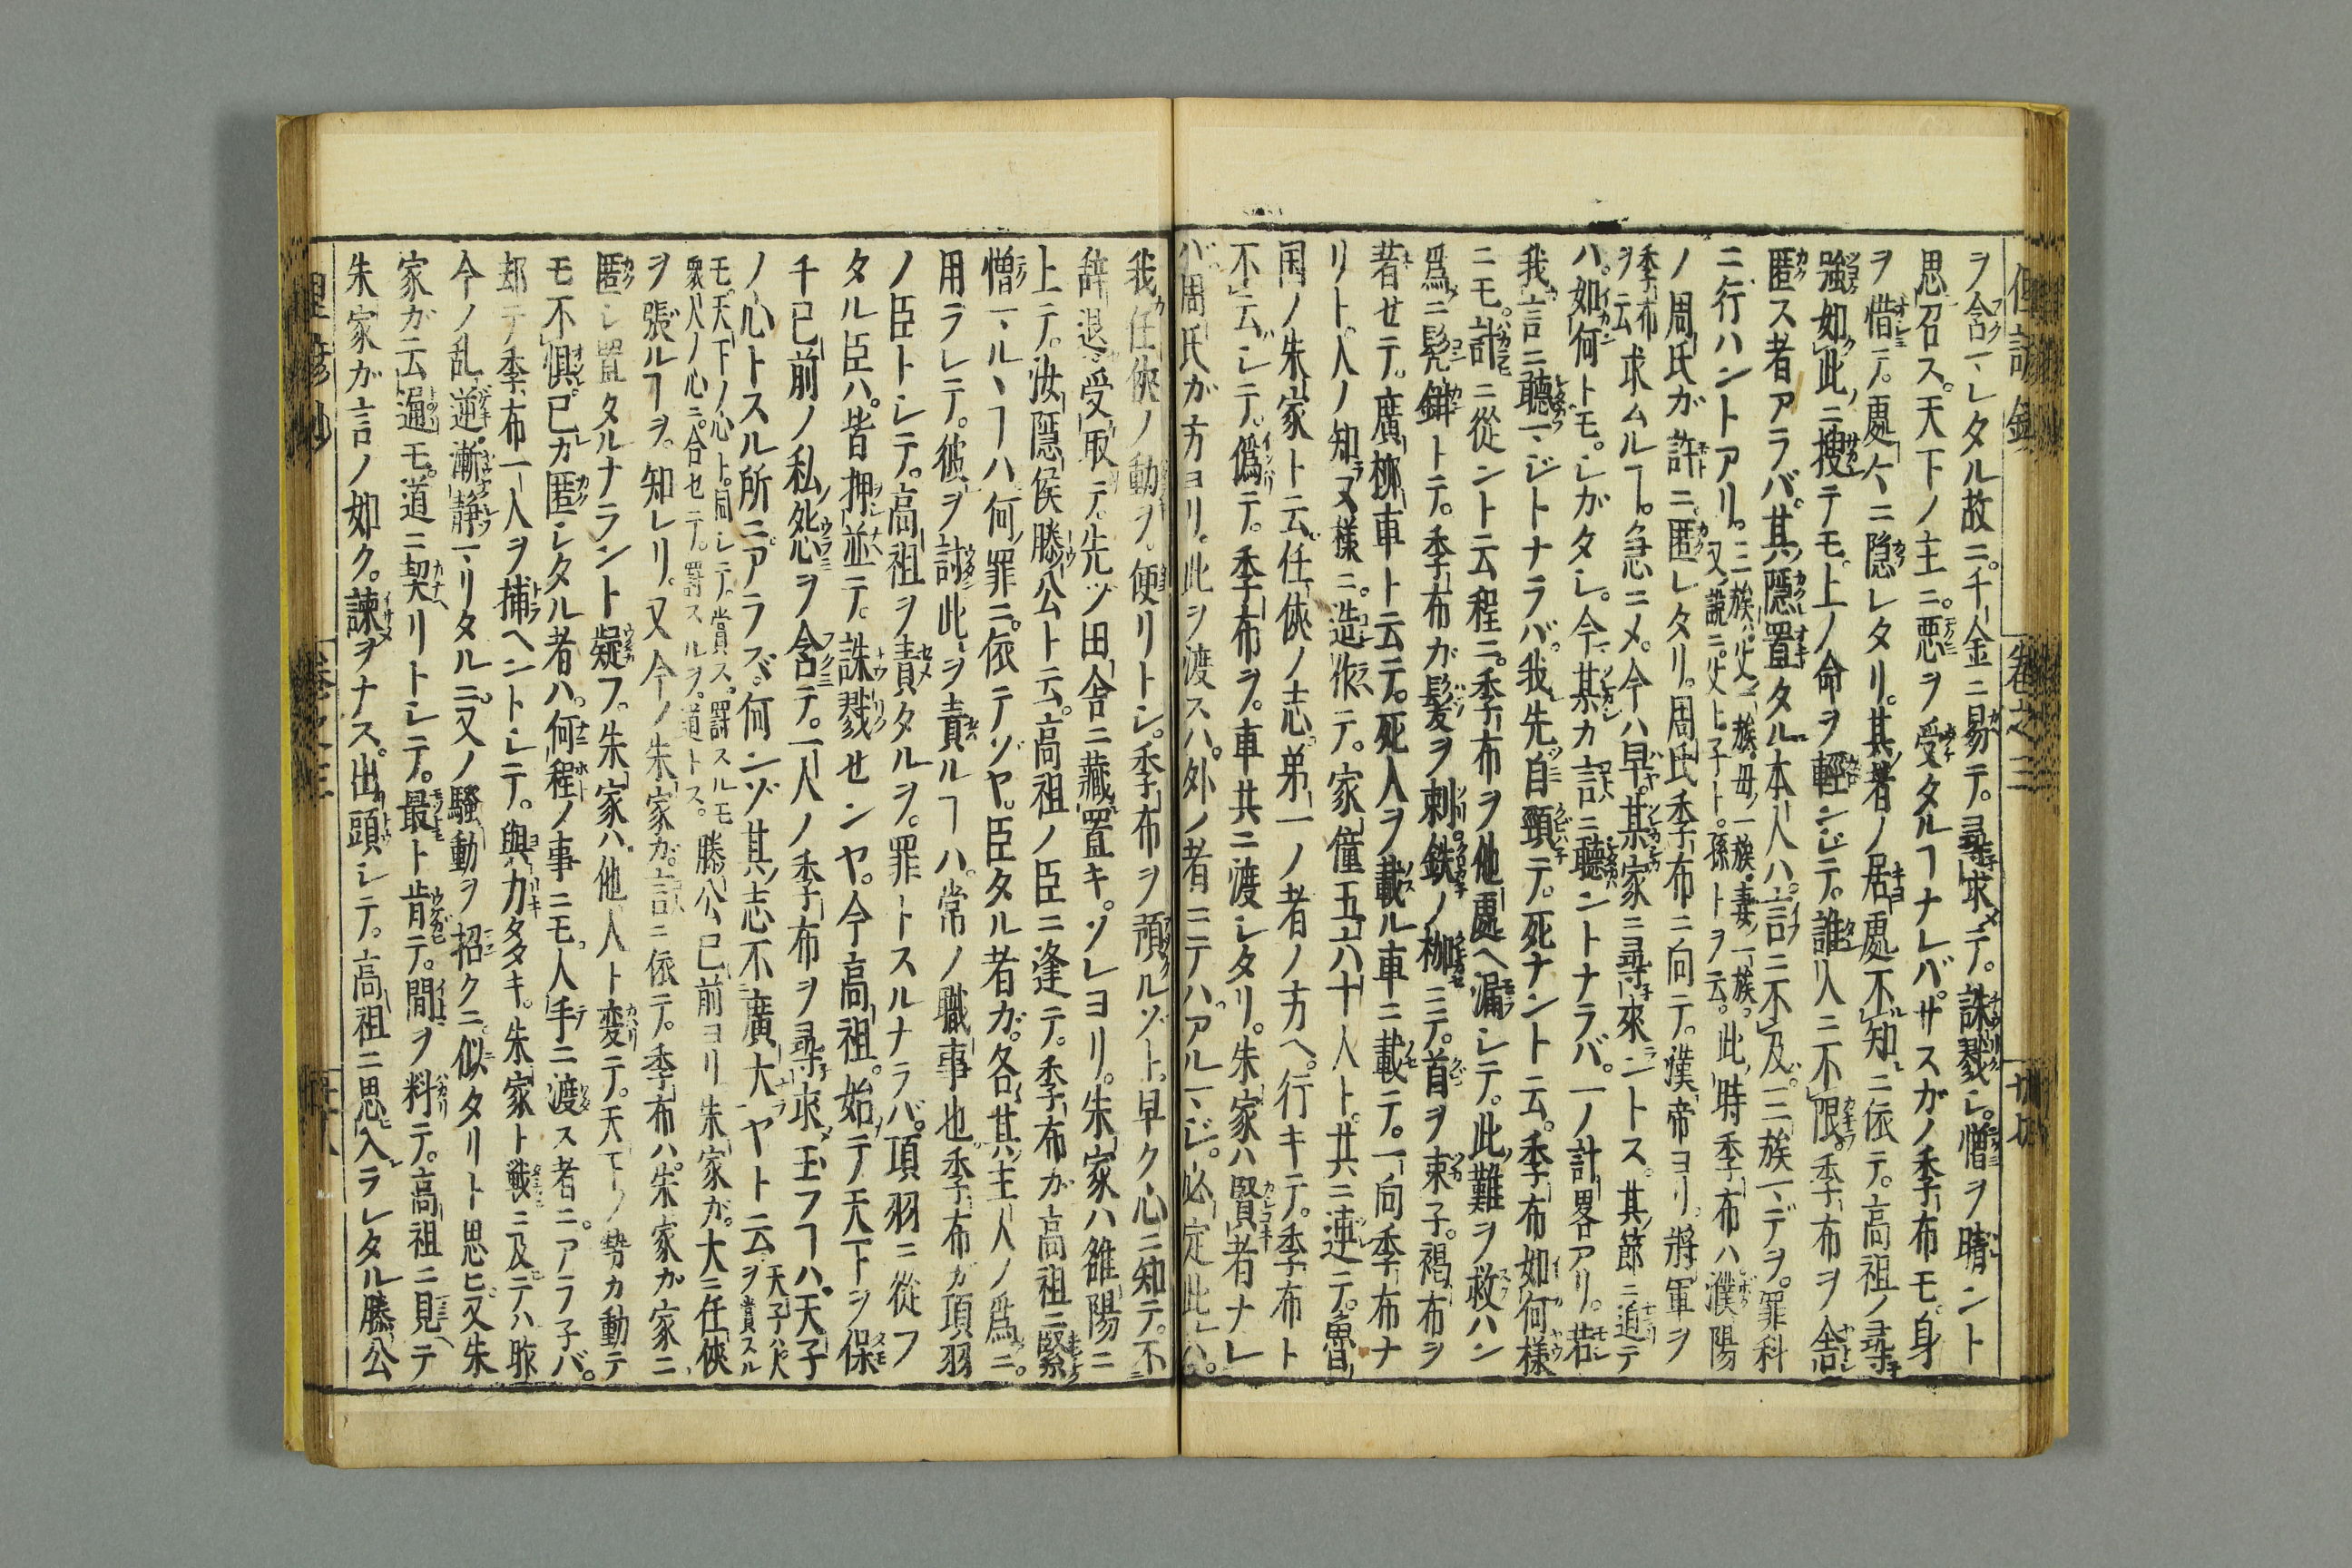 ヲ含マレタル故ニ。千金ニ易テ。尋求メテ。誅戮シ。憎ヲ晴ント
思召ス。天下ノ主ニ。悪ヲ受タルヿナレバ。サスガノ季布モ。身
ヲ惜テ。處々ニ隠レタリ。其者ノ居處不知ニ依テ。高祖ノ尋
強如此ニ捜テモ。上ノ命ヲ輕ンジテ。誰人ニ不限。季布ヲ舎
匿ス者アラバ。其隠置タル本人ハ。言ニ不及。三族マデヲ。罪科
ニ行ハントアリ。三族ハ父ノ一族。母ノ一族。妻ノ一族。又説ニ。父ト子ト。孫トヲ云。此時季布ハ濮陽
ノ周氏ガ許ニ匿レタリ。周氏季布ニ向テ。漢帝ヨリ。將軍ヲ
季布ヲ云求ムルヿ。急ニメ。今ハ早。某家ニ尋來ントス。其節ニ迫テ
ハ。如何トモ。シガタシ。今某カ言ニ聽ントナラバ。一ノ計畧アリ。若
我言ニ聽マジトナラバ。我先自頸テ。死ナント云。季布如何樣
ニモ。計ニ從ント云程ニ。季布ヲ他處ヘ漏シテ。此難ヲ救ハン
爲ニ髡鉗トテ。季布ガ髮ヲ剃。鉄ノ枷ニテ。首ヲ束子。褐布ヲ
著セテ。廣柳車ト云テ。死人ヲ載ル車ニ載テ。一向季布ナ
リト。人ノ知ヌ樣ニ。造作テ。家僮五六十人ト。共ニ連テ。魯
国ノ朱家ト云。任俠ノ志。第一ノ者ノ方ヘ。行キテ。季布ト
不云シテ。僞テ。季布ヲ。車共ニ渡シタリ。朱家ハ賢者ナレ
バ周氏ガ方ヨリ。此ヲ渡スハ。外ノ者ニテハ。アルマジ。必定此レハ。
我任俠ノ動ヲ。便リトシ。季布ヲ預ルゾト。早ク心ニ知テ。不
辞退受取テ。先ヅ田舎ニ藏置キ。ソレヨリ。朱家ハ雒陽ニ
上テ。汝隠侯滕公ト云。高祖ノ臣ニ逢テ。季布ガ高祖ニ緊
憎マルヽヿハ何ノ罪ニ。依テゾヤ。臣タル者ガ。各其主人ノ爲ニ。
用ラレテ。彼ヲ討此ヲ責ルヿハ。常ノ職事也。季布ガ項羽
ノ臣トシテ。高祖ヲ責タルヲ。罪トスルナラバ。項羽ニ從フ
タル臣ハ。皆押並テ。誅戮センヤ。今高祖。始テ天下ヲ保
千已前ノ私怨ヲ含テ。一人ノ季布ヲ尋求玉フヿハ。天子
ノ心トスル所ニアラズ。何ンゾ其志不廣大ヤト云。天子ハ。人ヲ賞スル
モ。天下ノ心ト。同シテ。賞ス。罸スルモ衆人ノ心ニ。合セテ。罸スルヲ。道トス。滕公已前ヨリ朱家ガ。大ニ任俠
ヲ張ルヿヲ。知レリ。又今ノ朱家ガ。言ニ依テ。季布ハ。朱家ガ家ニ
匿シ置タルナラント疑フ。朱家ハ他人ト変テ。天下ノ勢カ動テ
モ不惧。已カ匿シタル者ハ。何程ノ事ニモ。人手ニ渡ス者ニ。アラ子バ。
却テ季布一人ヲ捕ヘントシテ。與力多キ。朱家ト戰ニ及デハ昨
今ノ乱逆漸静マリタルニ。又ノ騒動ヲ招クニ。似タリト思ヒ。又朱
家ガ云逼モ。道ニ契リトシテ。最ト肯テ。間ヲ料テ。高祖ニ見テ
朱家ガ言ノ如ク。諫ヲナス。出頭シテ。高祖ニ思入ラレタル滕公